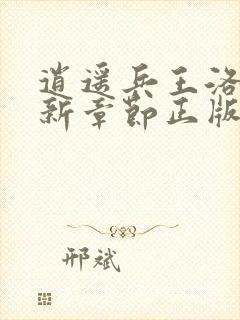 逍遥兵王洛
新章节正版
邢斌